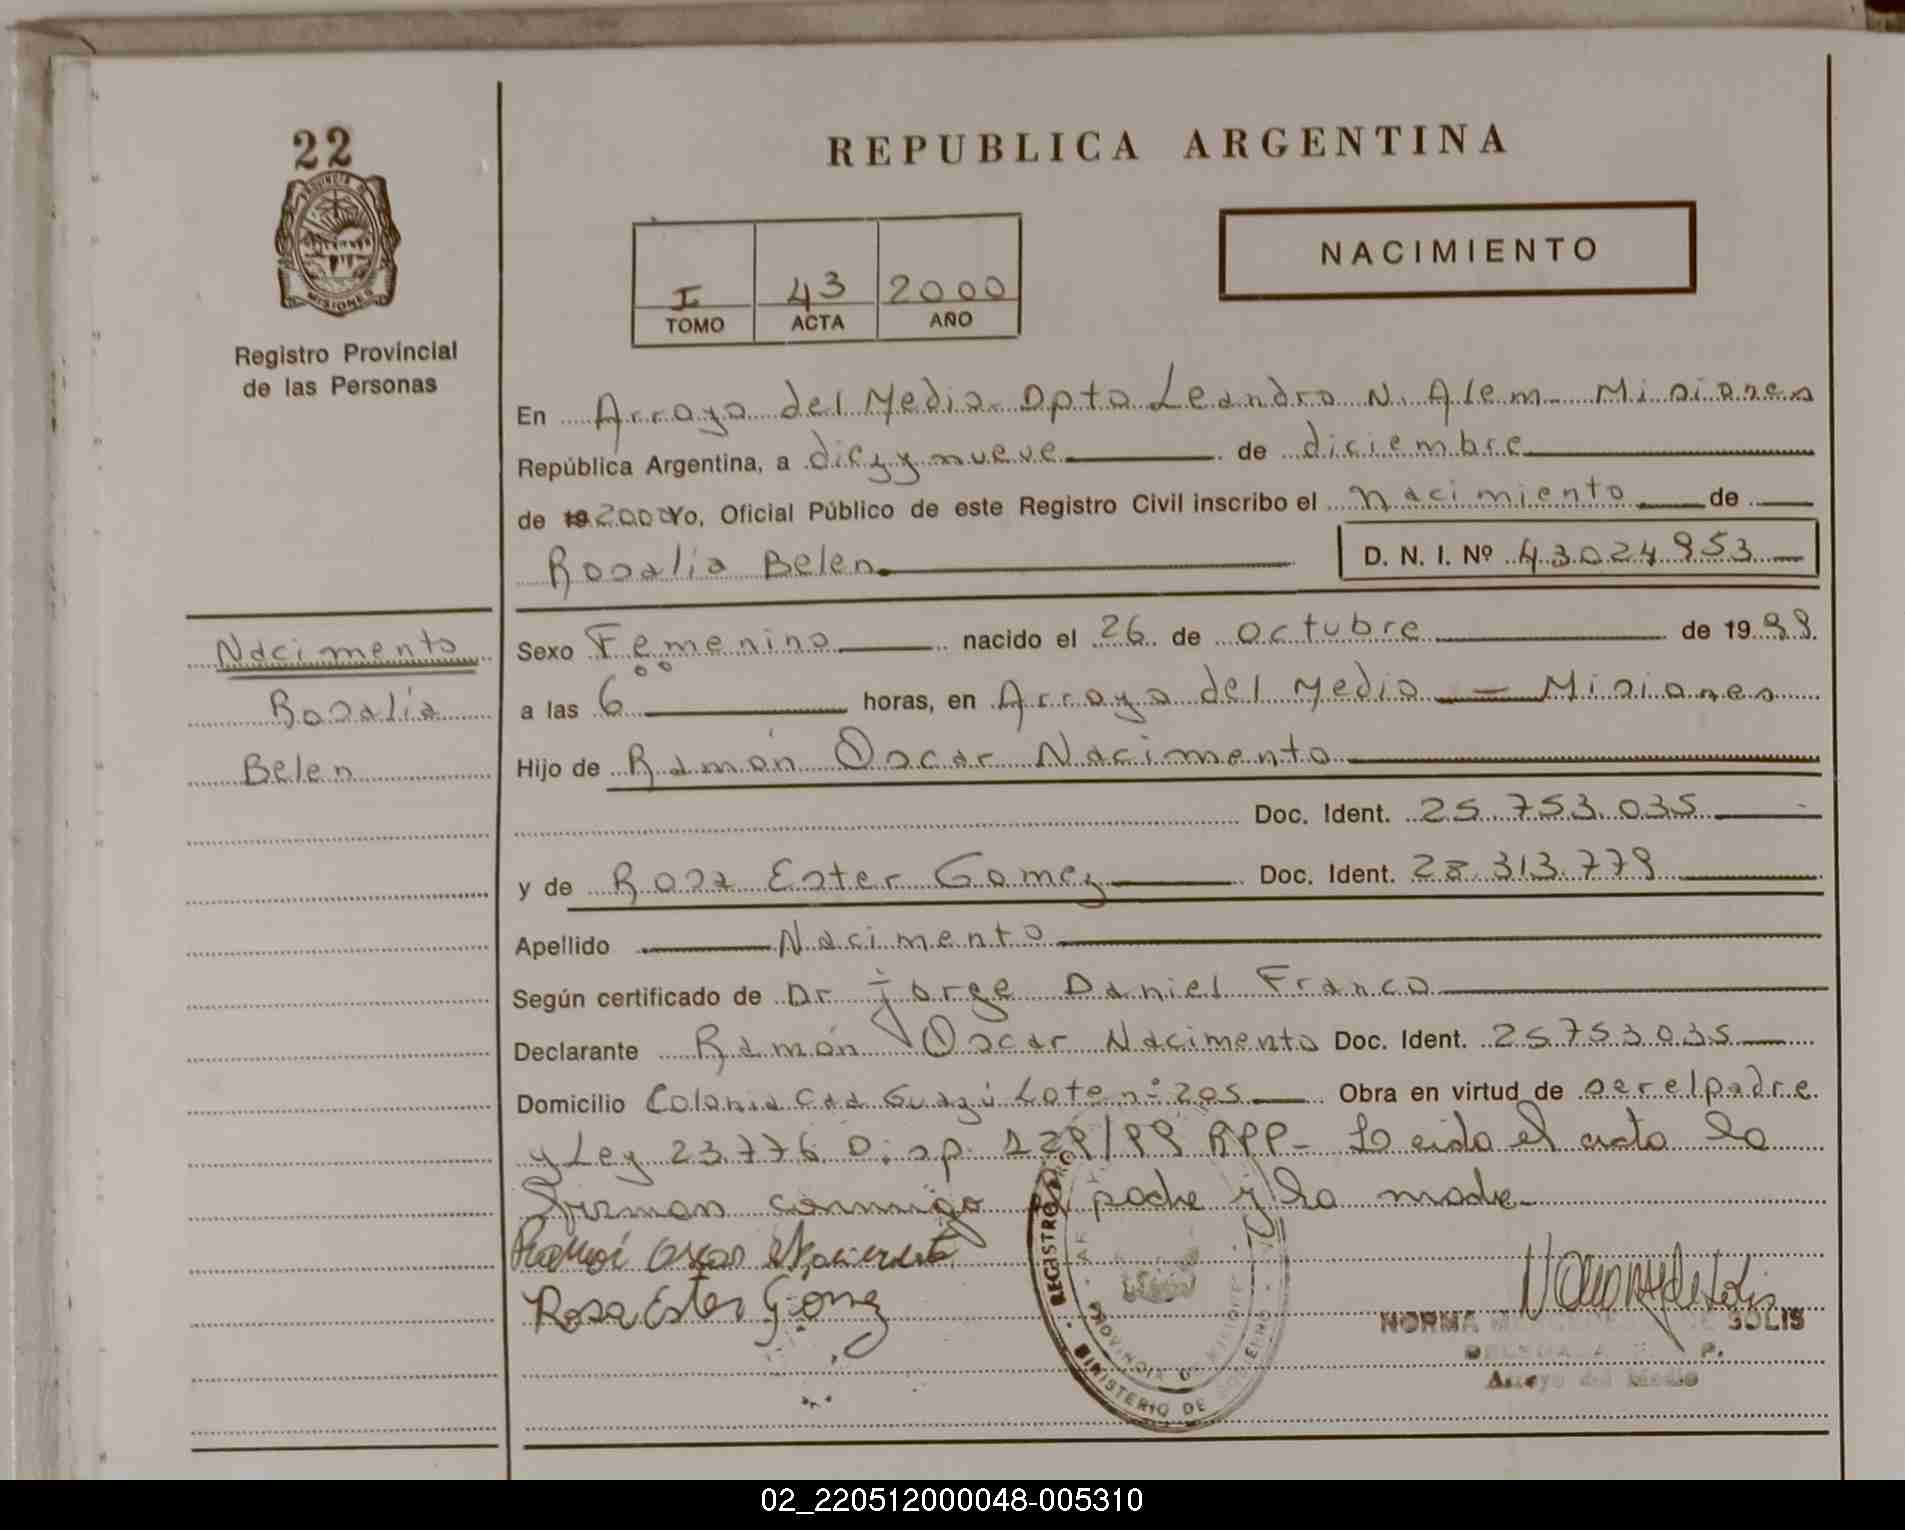 22
PROVINCIA DE
MISIONES
Registro Provincial
de las Personas
REPUBLICA ARGENTINA
I 43 2000
TOMO ACTA AÑO
NACIMIENTO
En Arroyo del Medio Dpto Leandro N. Alem - Misiones
República Argentina, a diez y nueve de diciembre
de 19 2000 Yo, Oficial Público de este Registro Civil inscribo el nacimiento de
Rosalia Belen D. N. I. Nº 43024953
Sexo Femenino nacido el 26 de octubre de 1999.
a las 6°° horas, en Arroyo del Medio - Misiones
Hijo de Ramón Oscar Nacimento
Doc. Ident. 25.753.035
y de Rosa Ester Gomez Doc. Ident. 28.313.779
Apellido Nacimento
Según certificado de Dr. Jorge Daniel Franco
Declarante Ramón Oscar Nacimento Doc. Ident. 25753035
Domicilio Colonia Caa Guazú Lote n° 205 Obra en virtud de ser el padre
y Ley 23.776 Disp. 129/99 RPP - Leida el acta la
firman conmigo el padre y la madre
Ramon Oscar Nacimento
Rosa Ester Gomez
REGISTRO
PROVINCIA DE MISIONES
MINISTERIO DE GOBIERNO
NORMA SOLIS
Arroyo del Medio
Nacimento
Rosalia
Belen
02_220512000048-005310